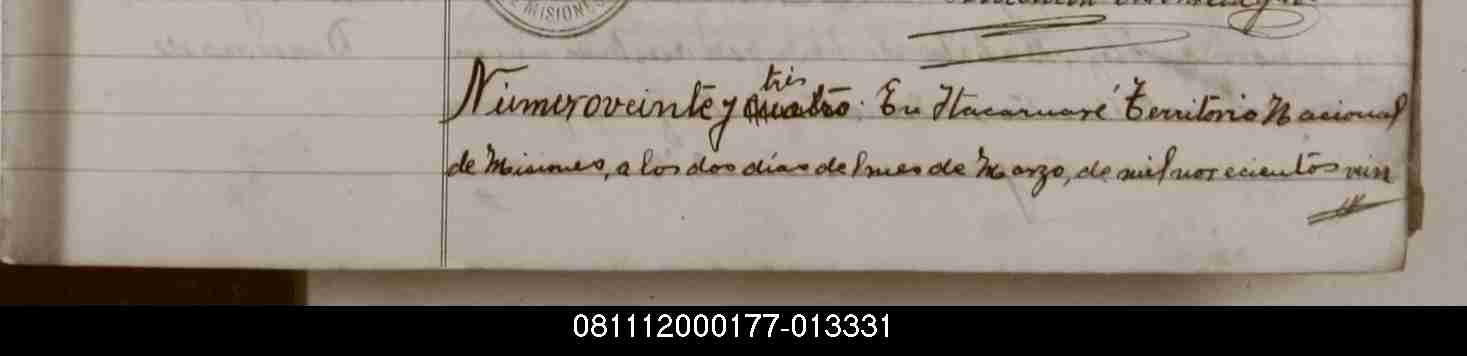 E MISIONES
tris
Numero veinte y quatro: En Itacaruaré Territorio Nacional
de Misiones, a los dos días del mes de Marzo, de mil novecientos vein
081112000177-013331